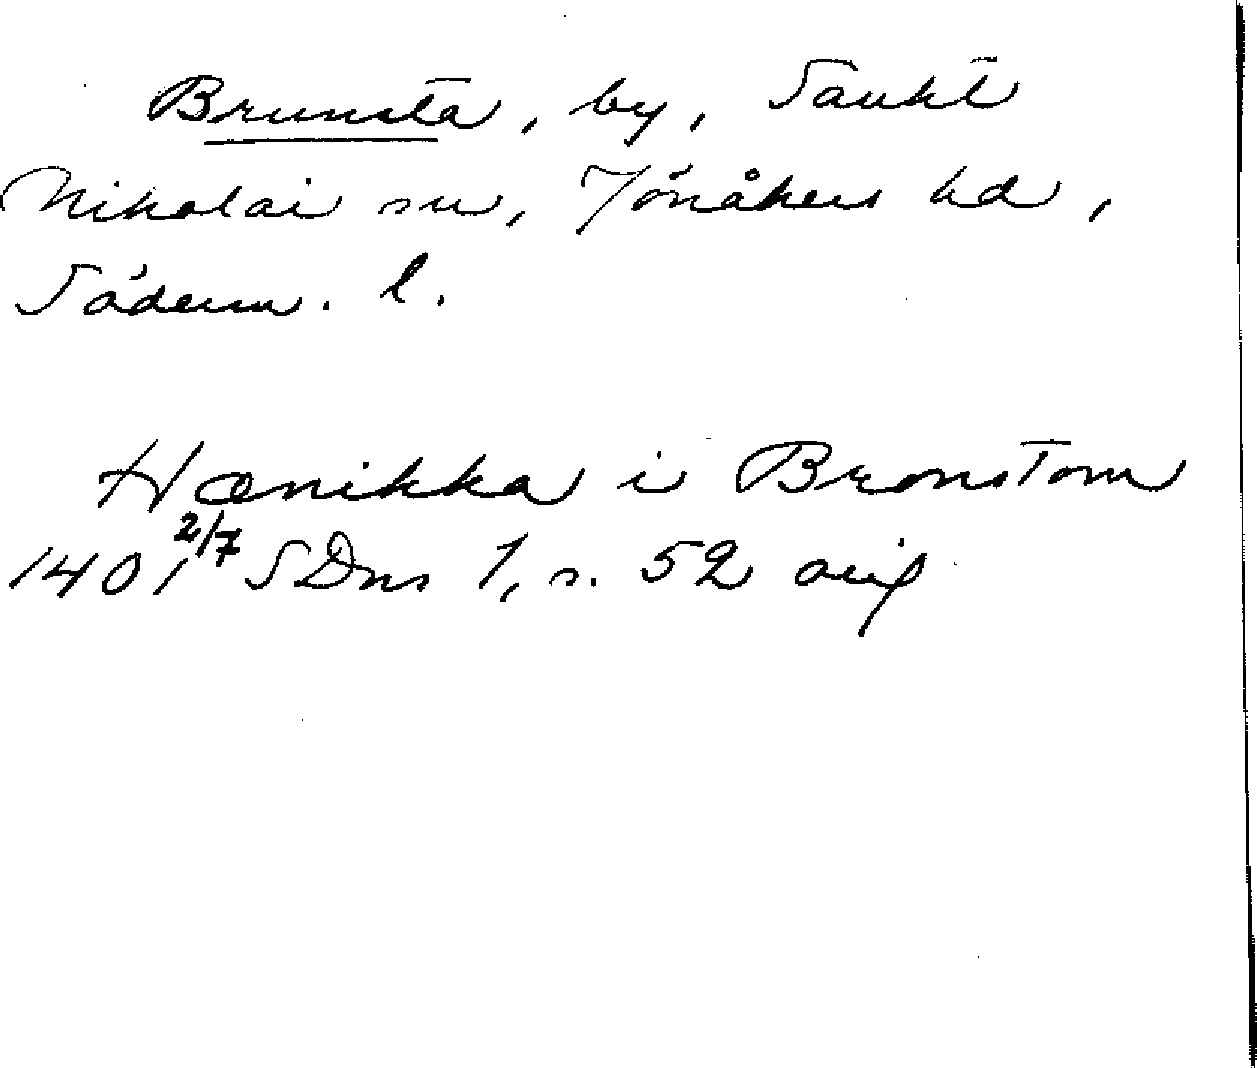 Brunsta, by, Sankt
Nikolai sn, Jönåkers hd,
Söderm. l.
Hænikka i Bronstom
1401 2/7 SDns 1, s. 52 orig